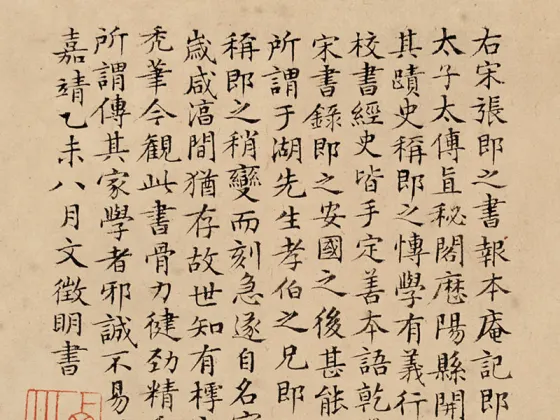 右宋張即之書報本庵記即
太子太傅直秘閣歷陽縣開
其蹟史稱即之博學有義行
校書經史皆手定善本語乾
宋書錄即之安國之後甚能
所謂于湖先生孝伯之兄即
稱即之稍變而刻急遂自名家
歲咸淳間猶存故世知有樗
禿筆今觀此書骨力健勁精
所謂傳其家學者邪誠不易
嘉靖乙未八月文徵明書